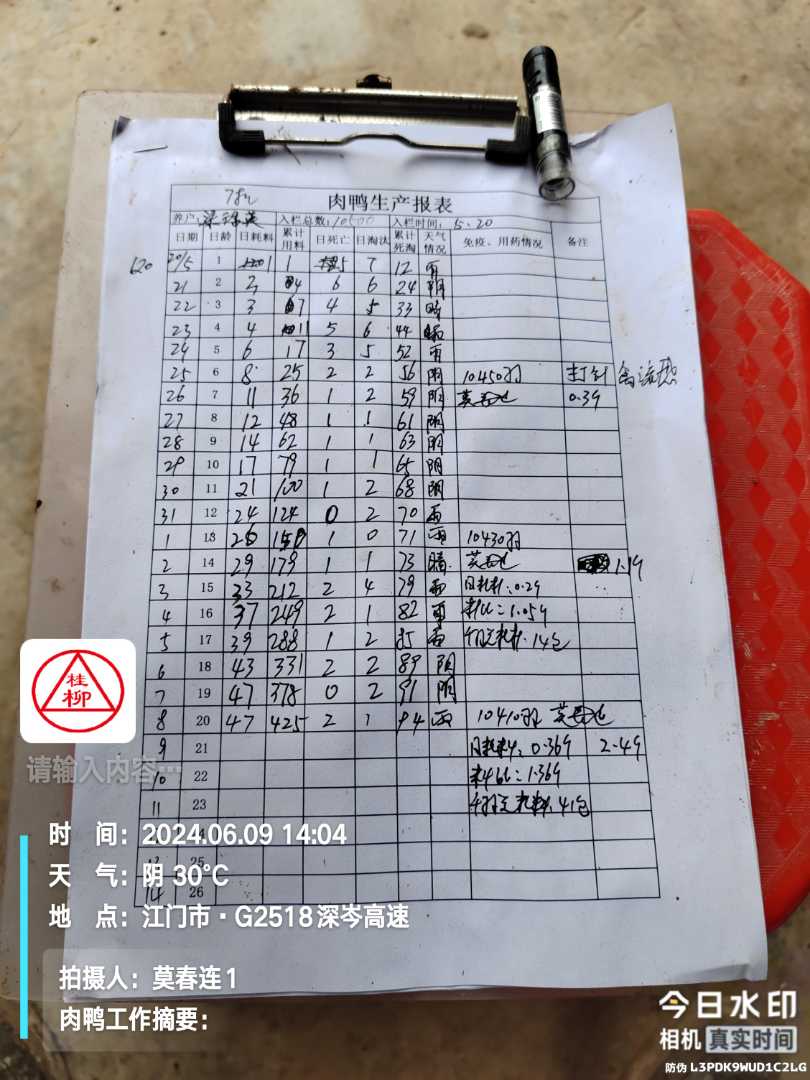 肉鸭生产报表
养户: 入栏总数: 10500 入栏时间: 5.20
日期 日龄 日耗料 累计用料 日死亡 日淘汰 累计死淘 天气 免疫、用药情况 备注
120 20/5 1 1 1 5 7 12 雨
21 2 2 4 6 6 24 阴
22 3 3 7 4 5 33
23 4 4 11 5 6 44
24 5 6 17 3 5 52 雨
25 6 8 25 2 2 56 阴 10450羽 打针 禽流感
26 7 11 36 1 2 59 阴 莫春连 0.39
27 8 12 48 1 1 61 阴
28 9 14 62 1 1 63 阴
29 10 17 79 1 1 65 阴
30 11 21 100 1 2 68 阴
31 12 24 124 0 2 70 雨
1 13 26 150 1 0 71 雨 10430羽
2 14 29 179 1 1 73 晴 莫春连 1.19
3 15 33 212 2 4 79 雨 日耗料:0.29
4 16 37 249 2 1 82 雨 料比:1.059
5 17 39 288 1 2 85 雨 千羽耗料:14包
6 18 43 331 2 2 89 阴
7 19 47 378 0 2 91 阴
8 20 47 425 2 1 94 雨 10410羽 莫春连
9 21 日耗料:0.369 2.49
10 22 料比:1.369
11 23 千羽耗料:41包
25
14 26
桂柳
请输入内容…
时 间: 2024.06.09 14:04
天 气: 阴 30℃
地 点: 江门市·G2518深岑高速
拍摄人: 莫春连1
肉鸭工作摘要:
今日水印
相机 真实时间
防伪 L3PDK9WUD1C2LG